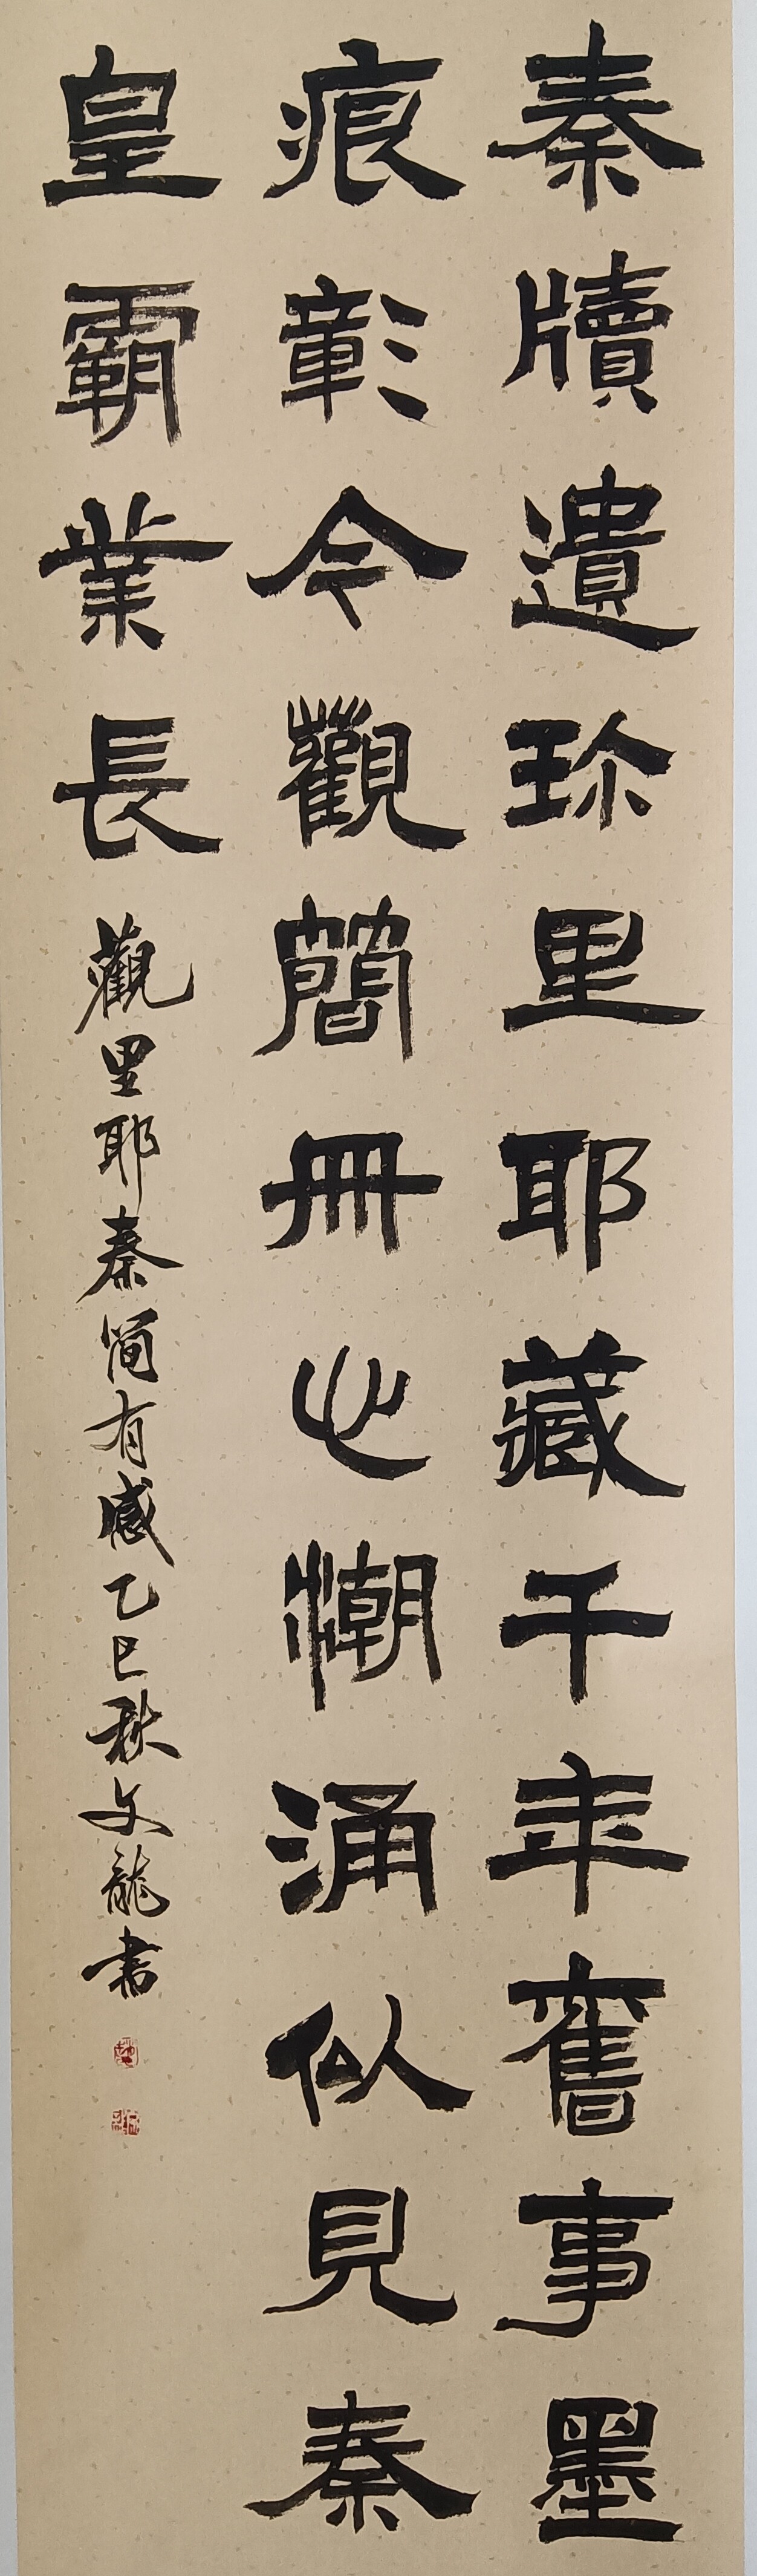 秦牘遺珎里耶藏千年舊事墨
痕彰令觀簡冊心潮涌似見秦
皇霸業長
觀里耶秦简有感乙巳秋文龍书